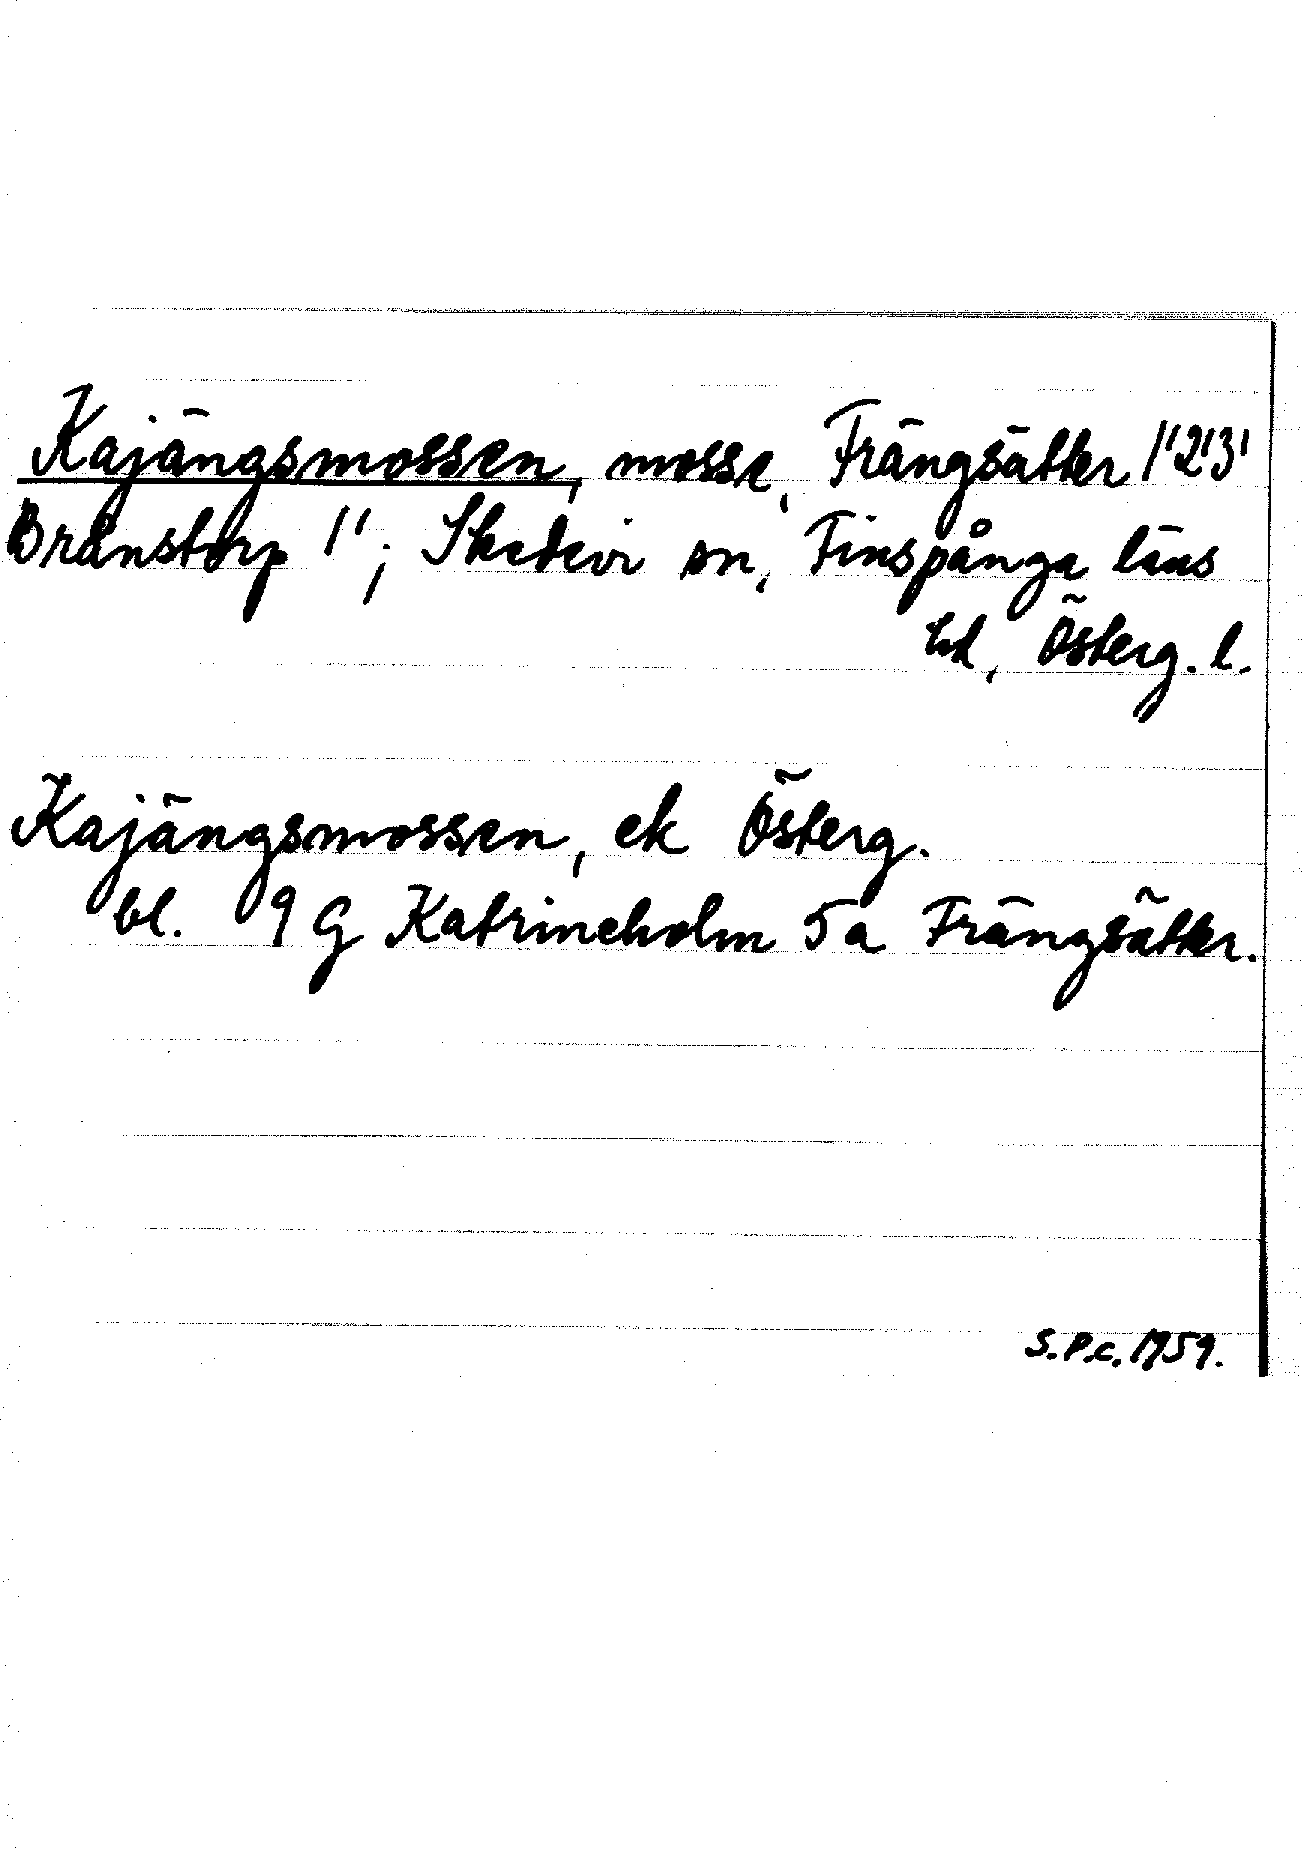 Kajängsmossen, mosse, Frängsätter 1'2'3'
Brånstorp 1'; Skedevi sn, Finspånga läns
hd, Österg. l.
Kajängsmossen, ek Österg.
bl. 9 G Katrineholm 5 a Frängsätter.
S.P.c. 1959.